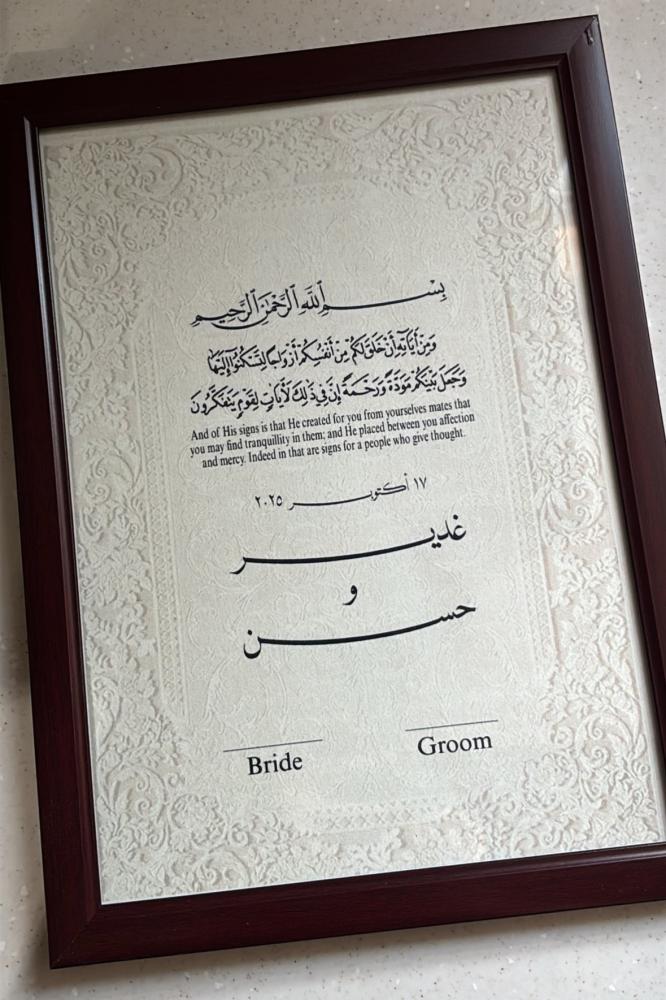 بِسْمِ اللَّهِ الرَّحْمَٰنِ الرَّحِيمِ
وَمِنْ آيَاتِهِ أَنْ خَلَقَ لَكُمْ مِنْ أَنْفُسِكُمْ أَزْوَاجًا لِتَسْكُنُوا إِلَيْهَا
وَجَعَلَ بَيْنَكُمْ مَوَدَّةً وَرَحْمَةً إِنَّ فِي ذَلِكَ لَآيَاتٍ لِقَوْمٍ يَتَفَكَّرُونَ
And of His signs is that He created for you from yourselves mates that
you may find tranquillity in them; and He placed between you affection
and mercy. Indeed in that are signs for a people who give thought.
١٧ أكتوبر ٢٠٢٥
غدير
و
حسن
Bride Groom